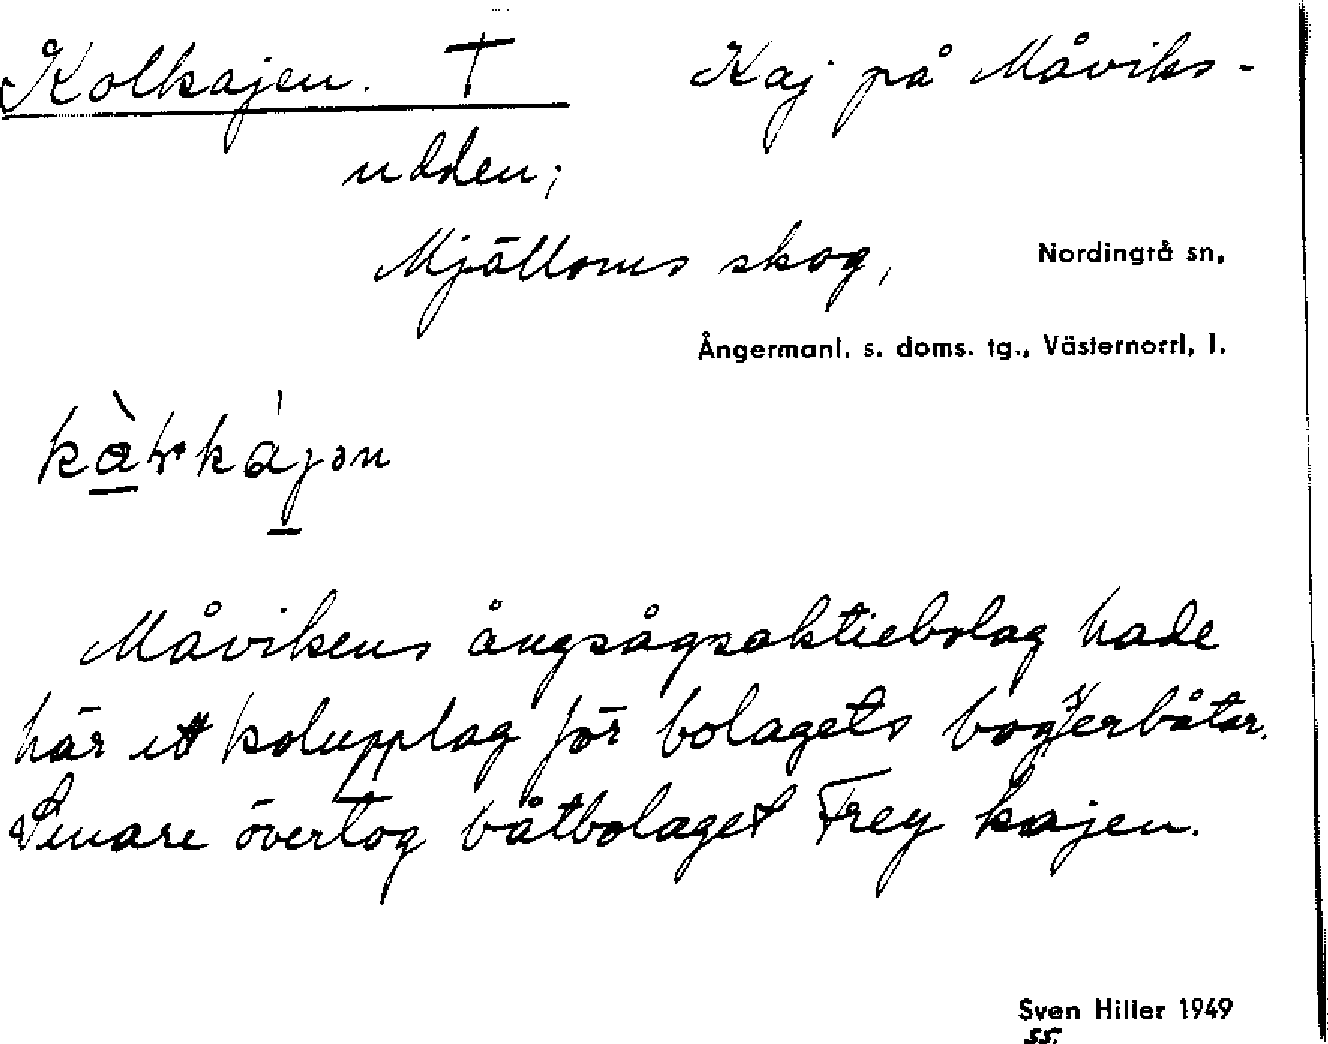 Kolkajen. † Kaj på Måviks-
udden;
Mjälloms skog, Nordingrå sn,
Ångermanl. s. doms. tg., Västernorrl. l.
Måvikens ångsågsaktiebolag hade
här ett kolupplag för bolagets bogserbåtar.
Senare övertog båtbolaget Frey kajen.
Sven Hiller 1949
55.